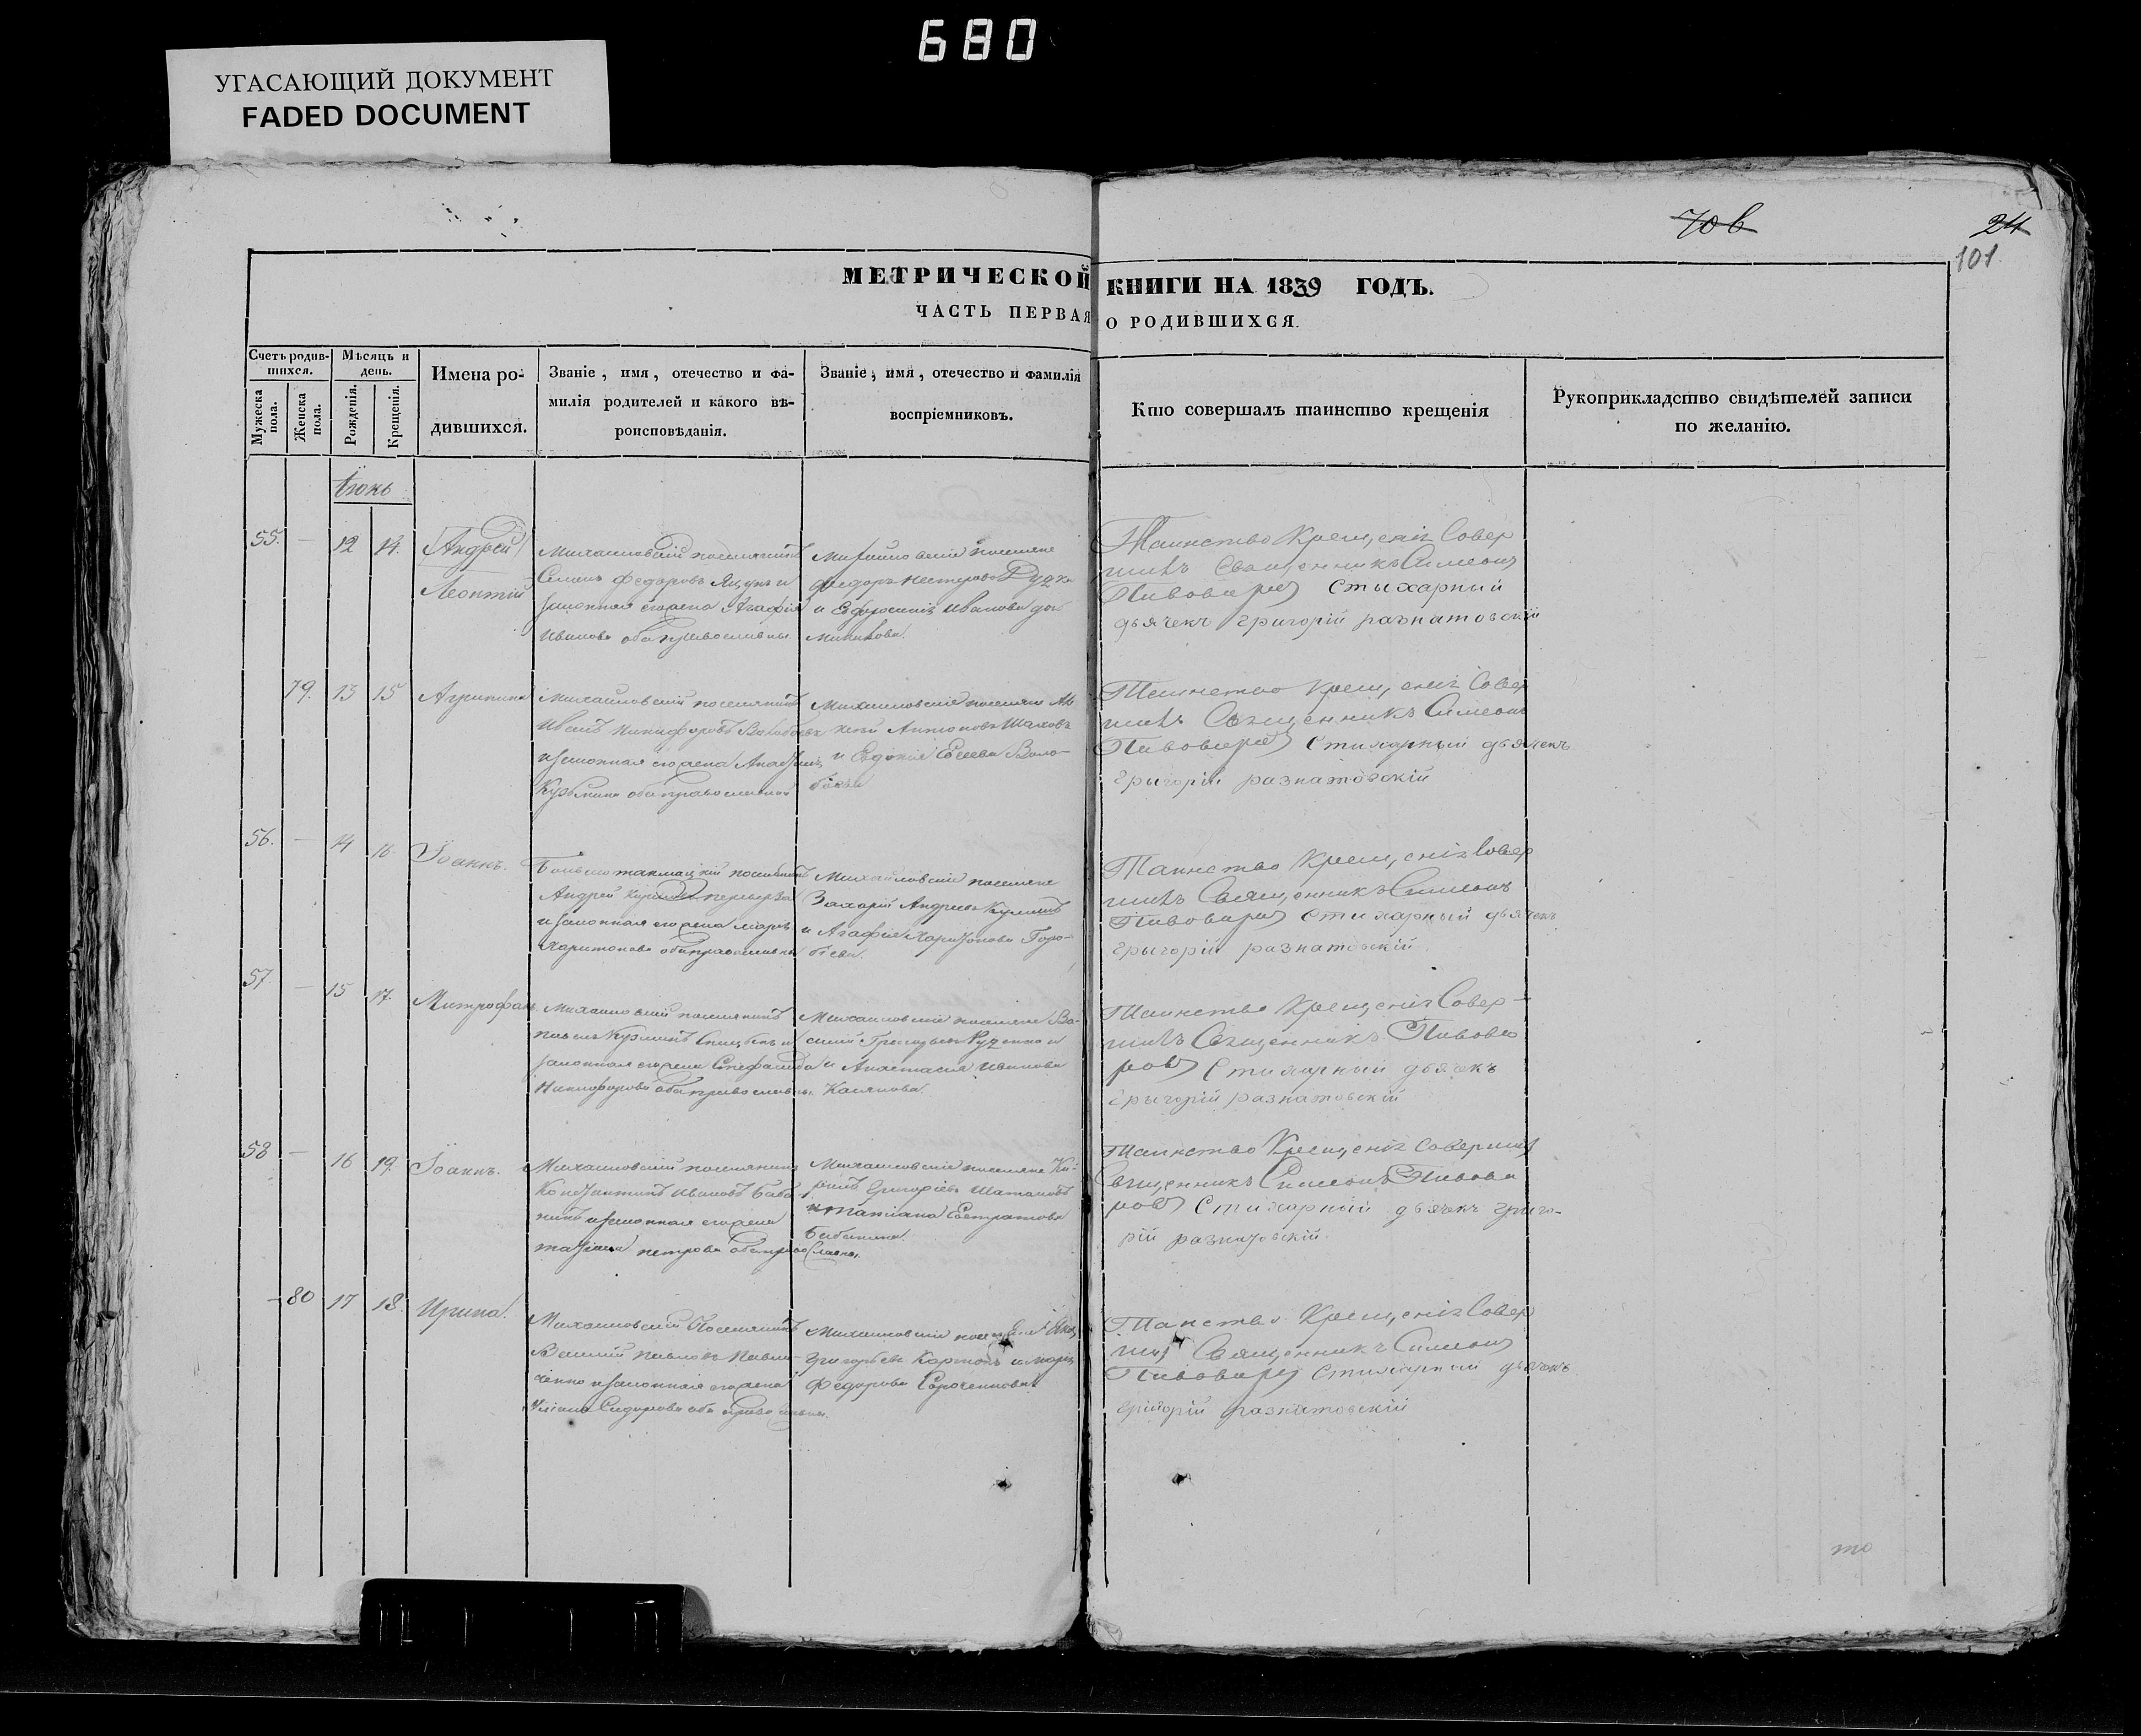 680
УГАСАЮЩИЙ ДОКУМЕНТ
FADED DOCUMENT
70 в
24
101
МЕТРИЧЕСКОЙ КНИГИ НА 1839 ГОДЪ.
ЧАСТЬ ПЕРВАЯ О РОДИВШИХСЯ.
Счетъ родив-
шихся.
Мужеска
пола.
Женска
пола.
Мѣсяцъ и
день.
Рожденія.
Крещенія.
Имена ро-
дившихся.
Званіе, имя, отечество и фа-
милія родителей и какого вѣ-
роисповѣданія.
Званіе, имя, отечество и фамилія
воспріемниковъ.
Кто совершалъ таинство крещенія
Рукоприкладство свидѣтелей записи
по желанію.
Іюнь
55. — 12 14. (Андрей)
Леонтій
Михайловскій поселянинъ
Семенъ Федоровъ Яцукъ и
законная его жена Агафія
Иванова оба православны
Михайловскіе поселяне
Федоръ Нестеровъ
и Ефросинія Иванова
Таинство Крещенія Совер
шилъ Священникъ Симеонъ
Пивоваровъ Стыхарный
дьячекъ григорій разнатовскій
79. 13 15 Агрипина
Михайловскій поселянинъ
Иванъ Никифоровъ
изаконная его жена
Кузьмина оба православны
Михайловскіе поселяне
Антоновъ Шаховъ
и Евдокія Евсеева Воло-
Таинство Крещенія Совер
шилъ Священникъ Симеонъ
Пивоваровъ Стихарный дьячекъ
грыгорій разнатовскій
56. — 14 16. Іоаннъ.
Большотокмацкій поселянинъ
Андрей
изаконная его жена Марія
Харитонова оба православны
Михайловскіе поселяне
Захарій Андреевъ
и Агафія Харитонова Горо-
бсева.
Таинство Крещенія Совер
шилъ Священникъ Симеонъ
Пивоваровъ Стихарный дьячекъ
грыгорій разнатовскій
57 — 15 17. Митрофанъ
Михайловскій поселянинъ
Павелъ Кузминъ
законная его жена Стефанида
Никифорова оба православны
Михайловскіе поселяне Ва-
силій Григорьевъ Руденко и
и Анастасия Иванова
Касянова.
Таинство Крещенія Совер-
шилъ Священникъ Пивова
ровъ Стихарный дьячекъ
грыгорій разнатовскій
58 — 16 19. Іоаннъ.
Михайловскій поселянинъ
Константинъ Ивановъ Баба-
нинъ изаконная его жена
татіана петрова оба право славны
Михайловскіе поселяне Ки-
рилъ Григоріевъ Шатановъ
и татіана Евстратова
Бабанина.
Таинство Крещенія Совершилъ
Священникъ Симеонъ Пивова
ровъ Стихарный дьячекъ григо-
рій разнатовскій
— 80 17 18. Ирина.
Михайловскій Поселянинъ
Василій Павловъ Павли-
ченко изаконная его жена
Сидорова оба православны
Михайловскіе
Григорьевъ и Марія
Федорова
Таинство Крещенія Совер
шилъ Священникъ Симеонъ
Пивоваровъ Стихарный дьячекъ
григорій разнатовскій
то